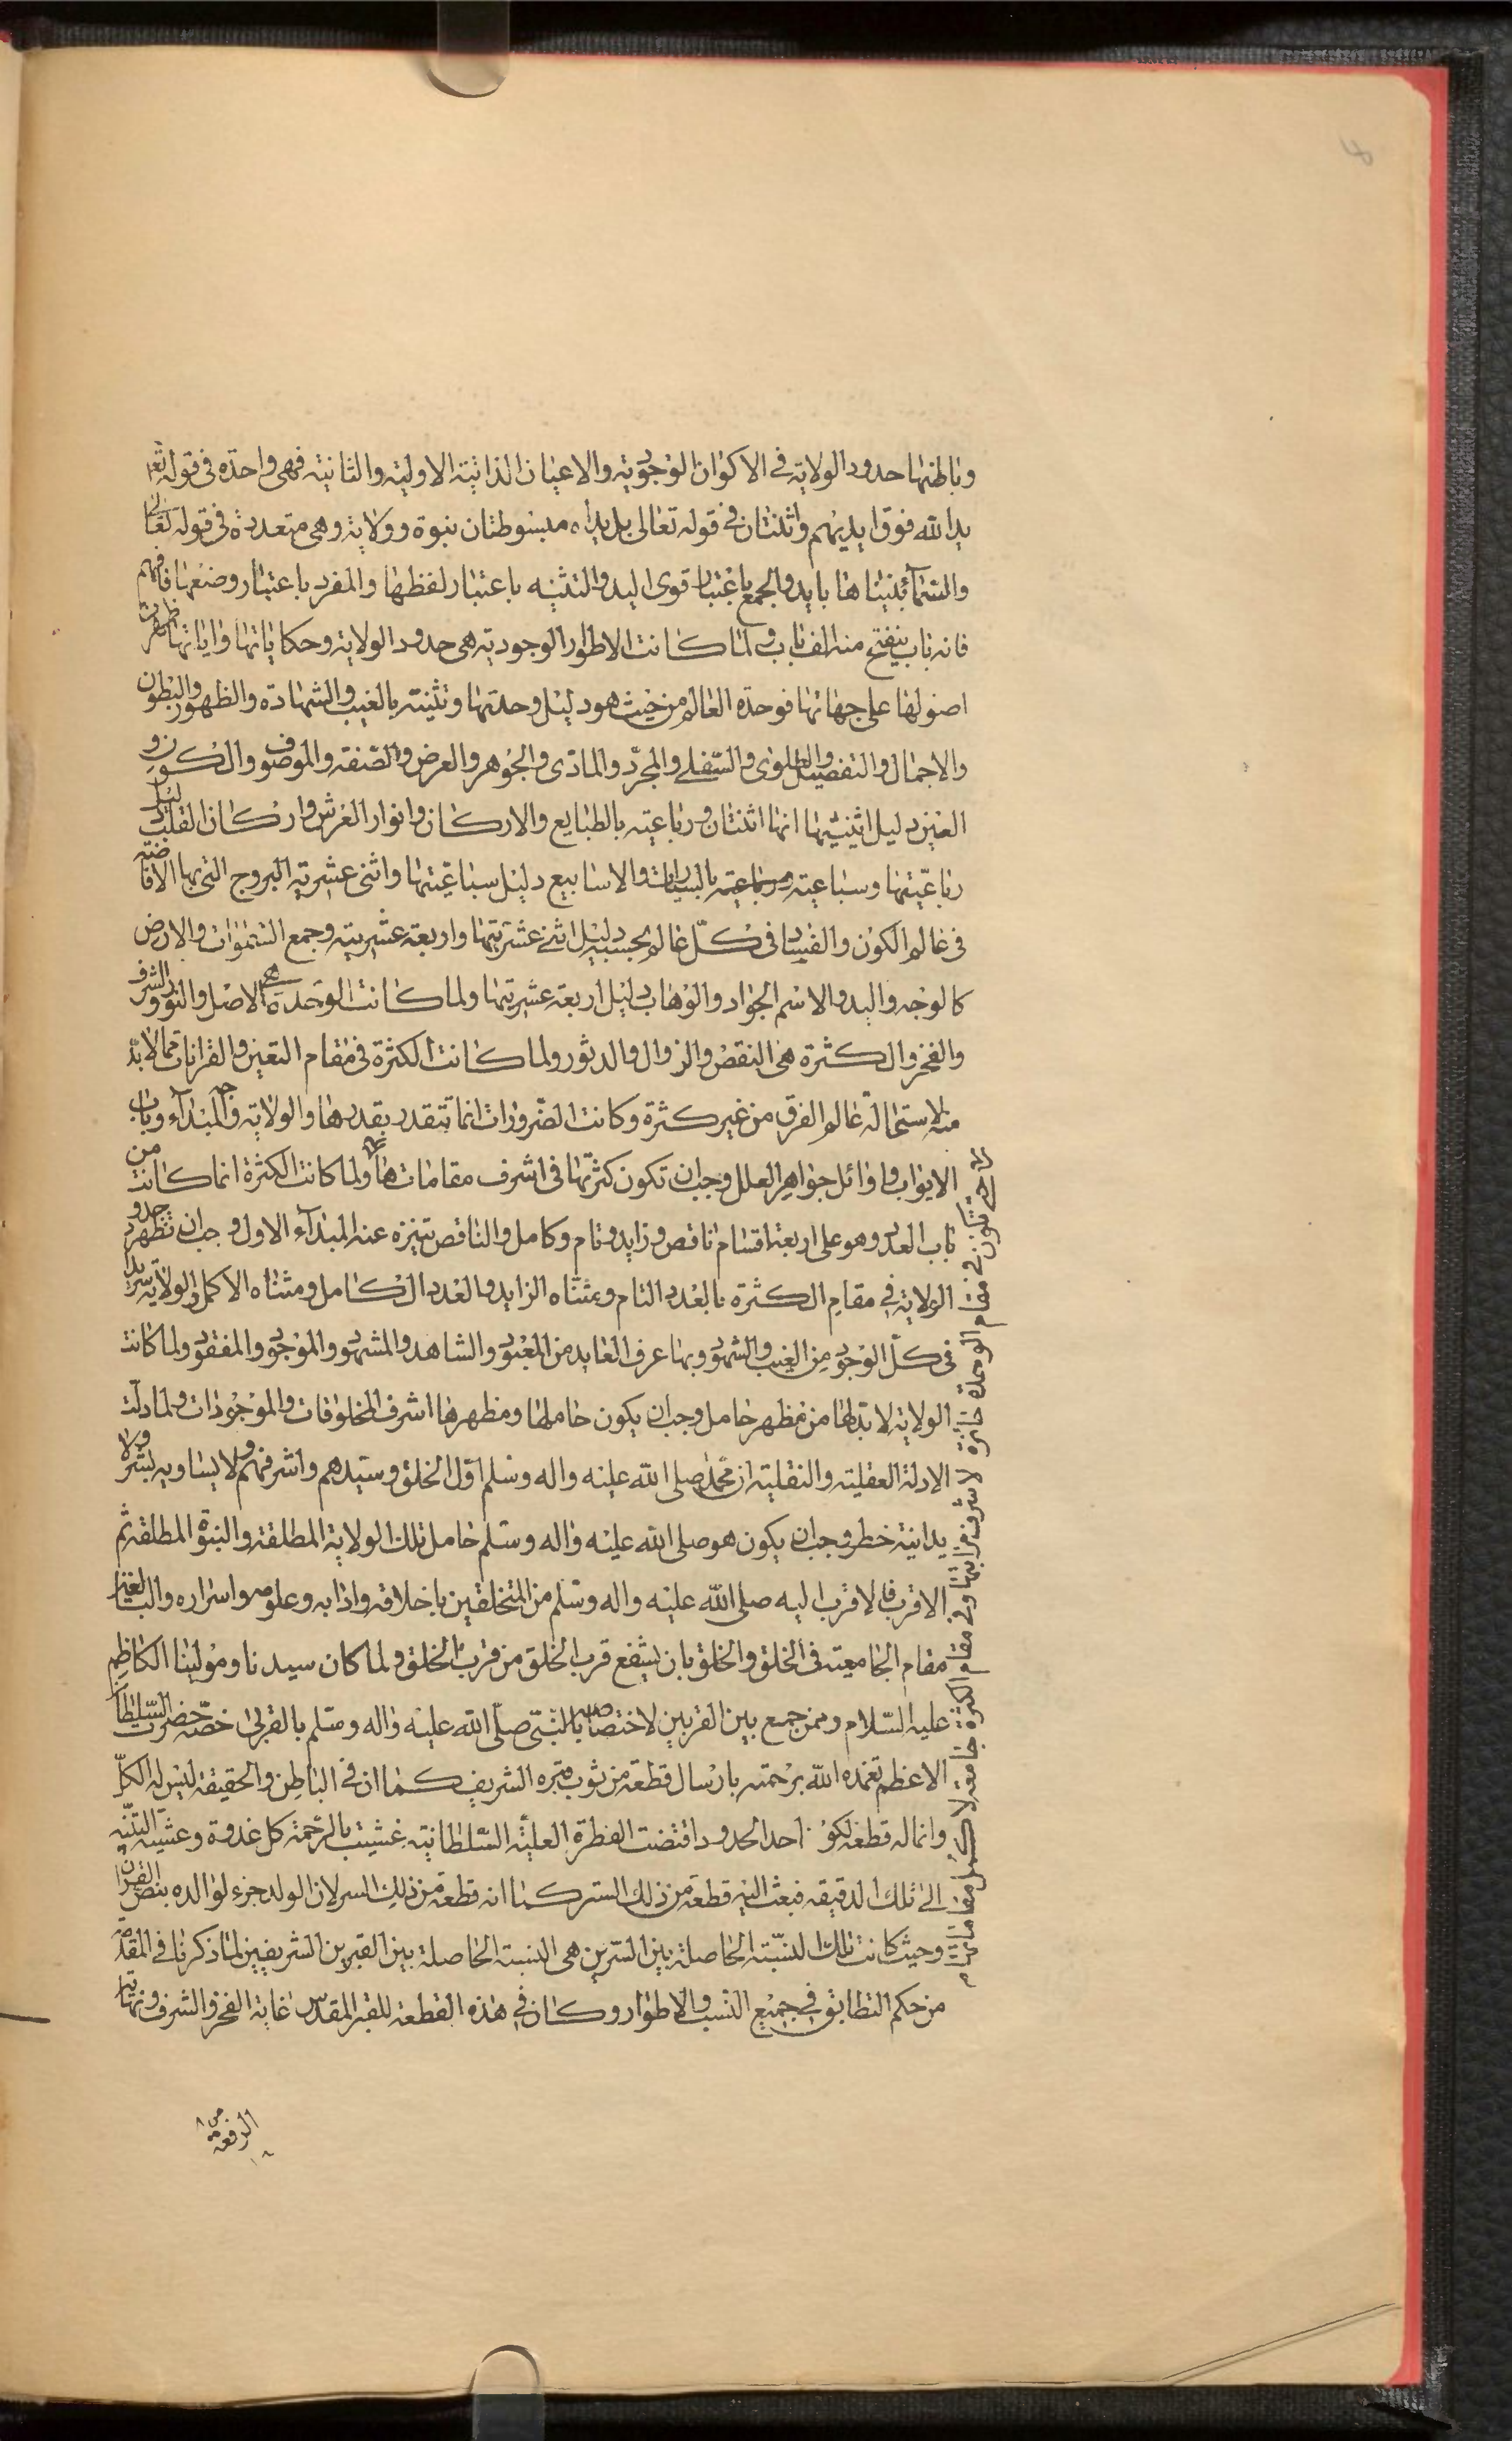 وباطنها حدود الولاية في الاكوان الوجودية والاعيان الذاتية الاولية والثانية فهي واحدة في قوله تعالى
يد الله فوق ايديهم واثنتان في قوله تعالى بل يداه مبسوطتان بنبوة وولاية وهي متعددة في قوله تعالى
والسمآء بنيناها بايد والجمع باعتبار قوى اليد والتثنيه باعتبار لفظها والمفرد باعتبار وضعها فافهم
فانه باب ينفتح منه الف باب ولما كانت الاطوار الوجودية هي حدود الولاية وحكاياتها واياتها ظهرت
اصولها على جهاتها فوحدة العالم من حيث هو دليل وحدتها وتثنيته بالغيب والشهادة والظهور والبطون
والاجمال والتفصيل والعلوى والسفلى والمجرد والمادى والجوهر والعرض والصفة والموصوف والكون و
العين دليل اثنيتها انها اثنتان ورباعيته بالطبايع والاركان وانوار العرش واركان القلب دليل
رباعيتها وسباعيته بالسيارات والاسابيع دليل سباعيتها واثنى عشريته البروج التى بها الافاضة
فى عالم الكون والفساد فى كل عالم بحسبه دليل اثنى عشريتها واربعة عشريته وجمع السموات والارض
كالوجه واليد والاسم الجواد والوهاب دليل اربعة عشريتها ولما كانت الوحدة هي الاصل والنور والشرف
والفخر والكثرة هى النقص والزوال والدثور ولما كانت الكثرة فى مقام التعين والقرانات مما لابد
منه لاستحالة عالم الفرق من غير كثرة وكانت الضرورات انما تتقدر بقدرها والولاية وجه المبدآء وباب
الابواب واوائل جواهر العلل وجب ان تكون كثرتها فى اشرف مقاماتها ولما كانت الكثرة انما كانت من
باب العدد وهو على اربعة اقسام ناقص وزايد وتام وكامل والناقص تنزه عنه المبدآء الاول وجب ان تظهر حدود
الولاية فى مقام الكثرة بالعدد التام وبمثناه الزايد والعدد الكامل ومثناه الاكمل والولاية سر يدا
فى كل الوجود من الغيب والشهود وبها عرف العابد من المعبود والشاهد والمشهود والموجود والمفقود ولما كانت
الولاية لابد لها من مظهر حامل وجب ان يكون حاملها ومظهرها اشرف المخلوقات والموجودات ولما دلت
الادلة العقلية والنقلية ان محمدا صلى الله عليه واله وسلم اول الخلق وسيدهم واشرفهم ولا يساويه بشر ولا
يدانيه خطر وجب ان يكون هو صلى الله عليه واله وسلم حامل تلك الولاية المطلقة والنبوة المطلقة ثم
الاقرب فالاقرب اليه صلى الله عليه واله وسلم من المتخلقين باخلاقه وادابه وعلومه واسراره والبالغين
مقام الجامعية فى الخلق والخلق بان يشفع قرب الخلق من قرب الخلق ولما كان سيدنا ومولينا الكاظم
عليه السلام ممن جمع بين القربين لاختصاصه بالنبى صلى الله عليه واله وسلم بالقربى خصه حضرت السلطان
الاعظم تغمده الله برحمته بارسال قطعة من ثوب قبره الشريف كما ان فى الباطن والحقيقة ليس له الكل
وانما له قطعة لكونه احد الحدود اقتضت الفطرة العلية السلطانية غشيت بالرحمة كل غدوة وعشية التنبه
الى تلك الدقيقه فبعث اليه قطعة من ذلك الستر كما انه قطعة من ذلك السر لان الولد جزء لوالده بنص القرآن
وحيث كانت تلك النسبة الحاصلة بين السترين هى النسبة الحاصلة بين القبرين الشريفين لما ذكرنا فى المقدمة
من حكم التطابق فى جميع النسب والاطوار وكان فى هذه القطعة للقبر المقدس غاية الفخر والشرف ونهاية
الرفعة